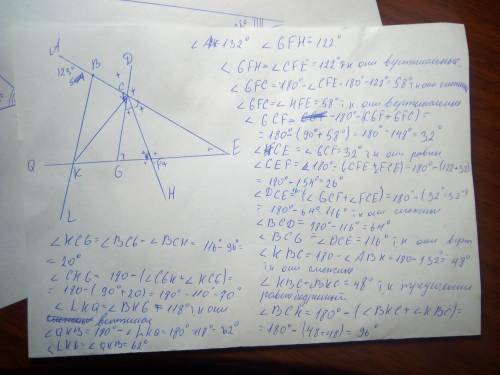 ∠A=132° ∠GFH=122°
∠GFH=∠CFE=122° т.к они вертикальные
∠GFC=180°-∠CFE=180-122=58° т.к они
∠GFC=∠HFE=58° т.к они вертикальные
∠GCF= 180-(CGF+GFC)=
=180°-(90°+58°)=180°-148°=32°
∠FCE=∠GCF=32° т.к они равны
∠CEF=∠180°-(CFE+FCE)=180°-(122+32)=
=180°-154°=26°
∠DCE=180-(∠GCF+∠FCE)=180°-(32°+32°)
=180°-64°=116° т.к они смежные
∠BCD=180°-116°=64°
∠BCG=∠DCE=116° т.к они верт
∠KBC=180-∠ABK=180-132=48°
т.к они смежные
∠KBC=∠BKC=48° т.к треугольник
равнобедренный
∠BCK=180°-(∠BKC+∠KBC)=
=180°-(48+48)=96°
∠KCG=∠BCG-∠BCK=116°-96°=
=20°
∠CKG=180-(∠CGK+∠KCG)=
=180-(90°+20)=180°-110°=70°
∠LKQ=∠BKG=118° т.к они
∠QKB=180°-∠LKQ=180°-118°=62°
∠LKG=∠QKB=62°
A
B
D
C
E
Q
K
G
H
L